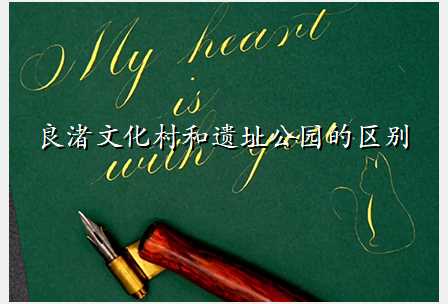 My heart
is
良渚文化村和遗址公园的区别
with you